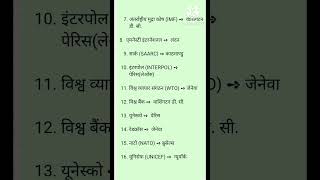 7. अंतर्राष्ट्रीय मुद्रा कोष (IMF) → वाशिंगटन
डी. सी.
8 एमनेस्टी इंटरनेशनल → लंदन
9. सार्क (SAARC) → काठमाण्डु
10. इंटरपोल (INTERPOL) →
पेरिस(लेओंस)
11. विश्व व्यापार संगठन (WTO) → जेनेवा
12. विश्व बैंक → वाशिंगटन डी. सी.
13. यूनेस्को → पेरिस
14. रेडक्रॉस → जेनेवा
15. नाटो (NATO) → ब्रुसेल्स
16. यूनिसेफ (UNICEF) → न्यूयॉर्क
10. इंटरपोल
पेरिस(ले
11. विश्व व्या
12. विश्व बैंक
13. यूनेस्को
जेनेवा
सी.